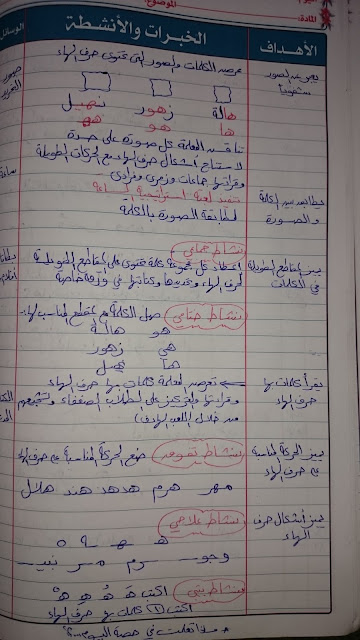 الموضوع:
المادة:
الأهداف
الخبرات والأنشطة
الوسائل
عرض الكلمات والصور التي تحتوي حرف الهاء
هالة زهور نهيل
ها هو هي
تناقش المعلمة كل صورة على حدة
لاستنتاج أشكال حرف الهاء مع الحركات الطويلة
وقراءتها جماعات وزمري وفرادى
تنفيذ لعبة استراتيجية
لمطابقة الصورة بالكلمة
يطابق بين الكلمة
والصورة
نشاط جماعي
يميز المقاطع الطويلة
في الكلمات
إعطاء كل مجموعة كلمة تحتوي على المقاطع الطويلة
لحرف الهاء وكتابتها في ورقة خاصة
نشاط ختامي
صل الكلمة مع المقطع المناسب لها
هو هالة
هي زهور
ها نهيل
يقرأ كلمات بها
حرف الهاء
تعرض المعلمة كلمات بها حرف الهاء
وقراءتها والتركيز على الطلاب الضعفاء وتشجيعهم
من خلال اللعب الهادف
يميز الحركة المناسبة
مع حرف الهاء
نشاط تقويمي
ضع الحركة المناسبة مع حرف الهاء
مهر هرم هدهد هند هلال
يميز أشكال حرف
الهاء
نشاط علاجي
هـ ـهـ ـه ه
وجـ رم مـر نبيـ
نشاط بيتي
اكتب هَ هُ هِ هْ
اكتب كلمات بها حرف الهاء
ماذا تعلمت في حصة اليوم؟